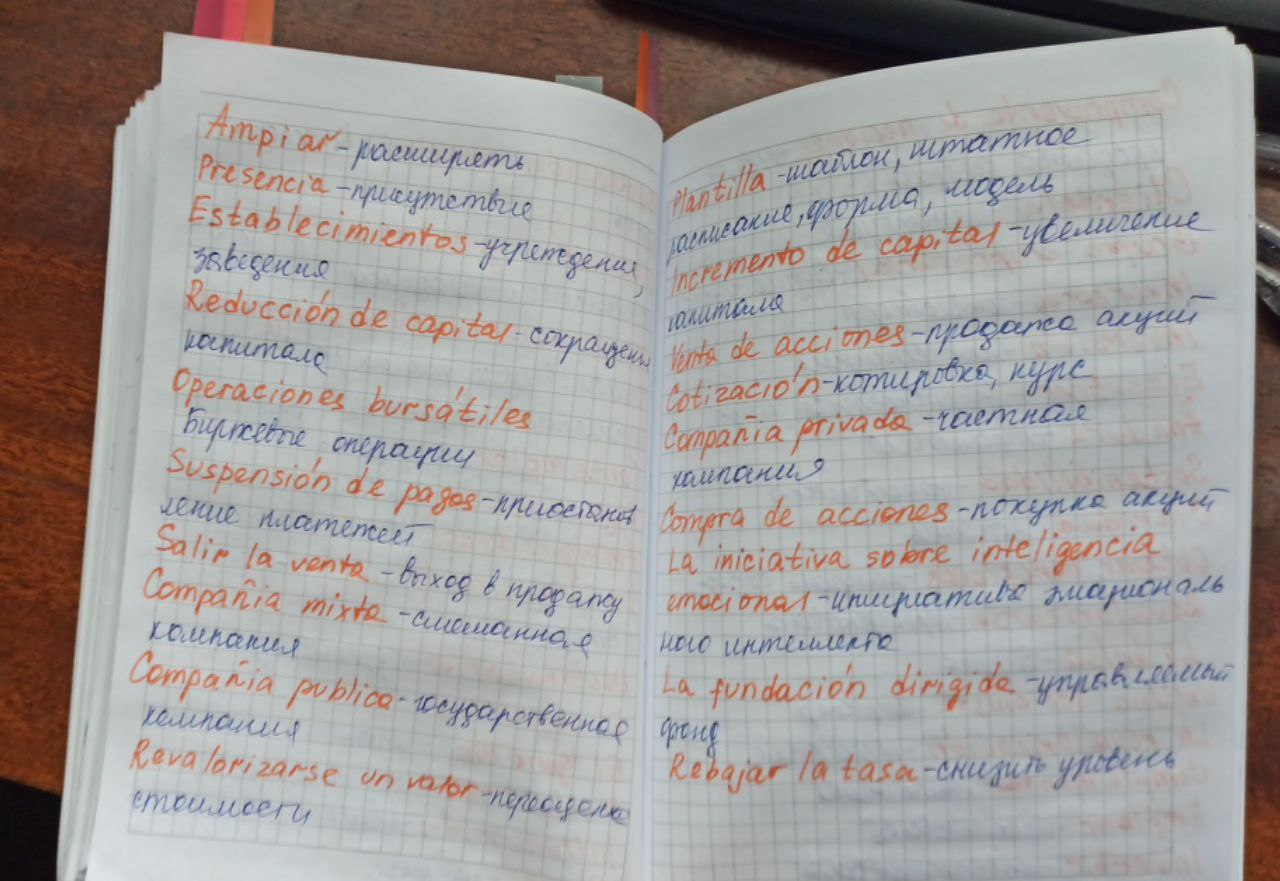 Ampiar - расширять
Presencia - присутствие
Establecimientos - учреждения,
заведения
Reducción de capital - сокращени
капитала
Operaciones bursátiles
Биржевые операции
Suspensión de pagos - приостанов
ление платежей
Salir la venta - выход в продажу
Compañia mixta - смешанная
компания
Compañia publica - государственная
компания
Revalorizarse un valor - переоценка
стоимости
Plantilla - шаблон, штатное
расписание, форма, модель
Incremento de capital - увеличение
капитала
Venta de acciones - продажа акций
Cotización - котировка, курс
Compañia privada - частная
компания
Compra de acciones - покупка акций
La iniciativa sobre inteligencia
emocional - инициатива эмоциональ
ного интеллекта
La fundación dirigida - управляемый
фонд
Rebajar la tasa - снизить уровень